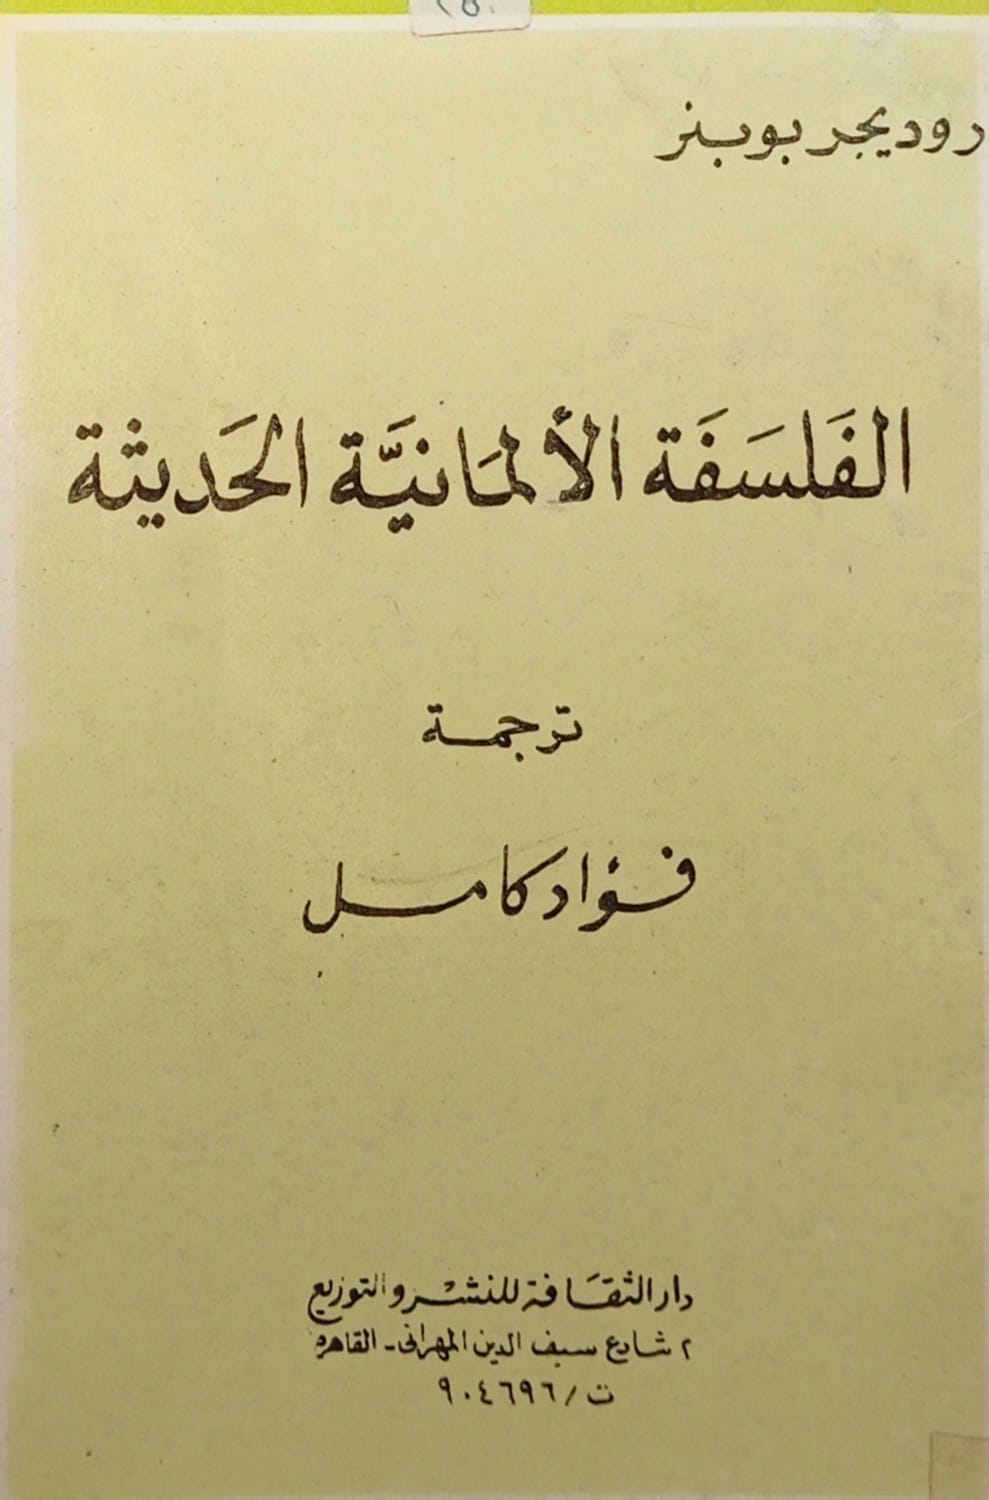 روديجر بوبنر
الفَلسَفَة الألمَانيَّة الحَديثة
ترجمة
فؤاد كامل
دار الثقَافة للنشْر والتوزيع
٢ شارع سيف الدين المهرانى - القاهرة
ت / ٩٠٤٦٩٦